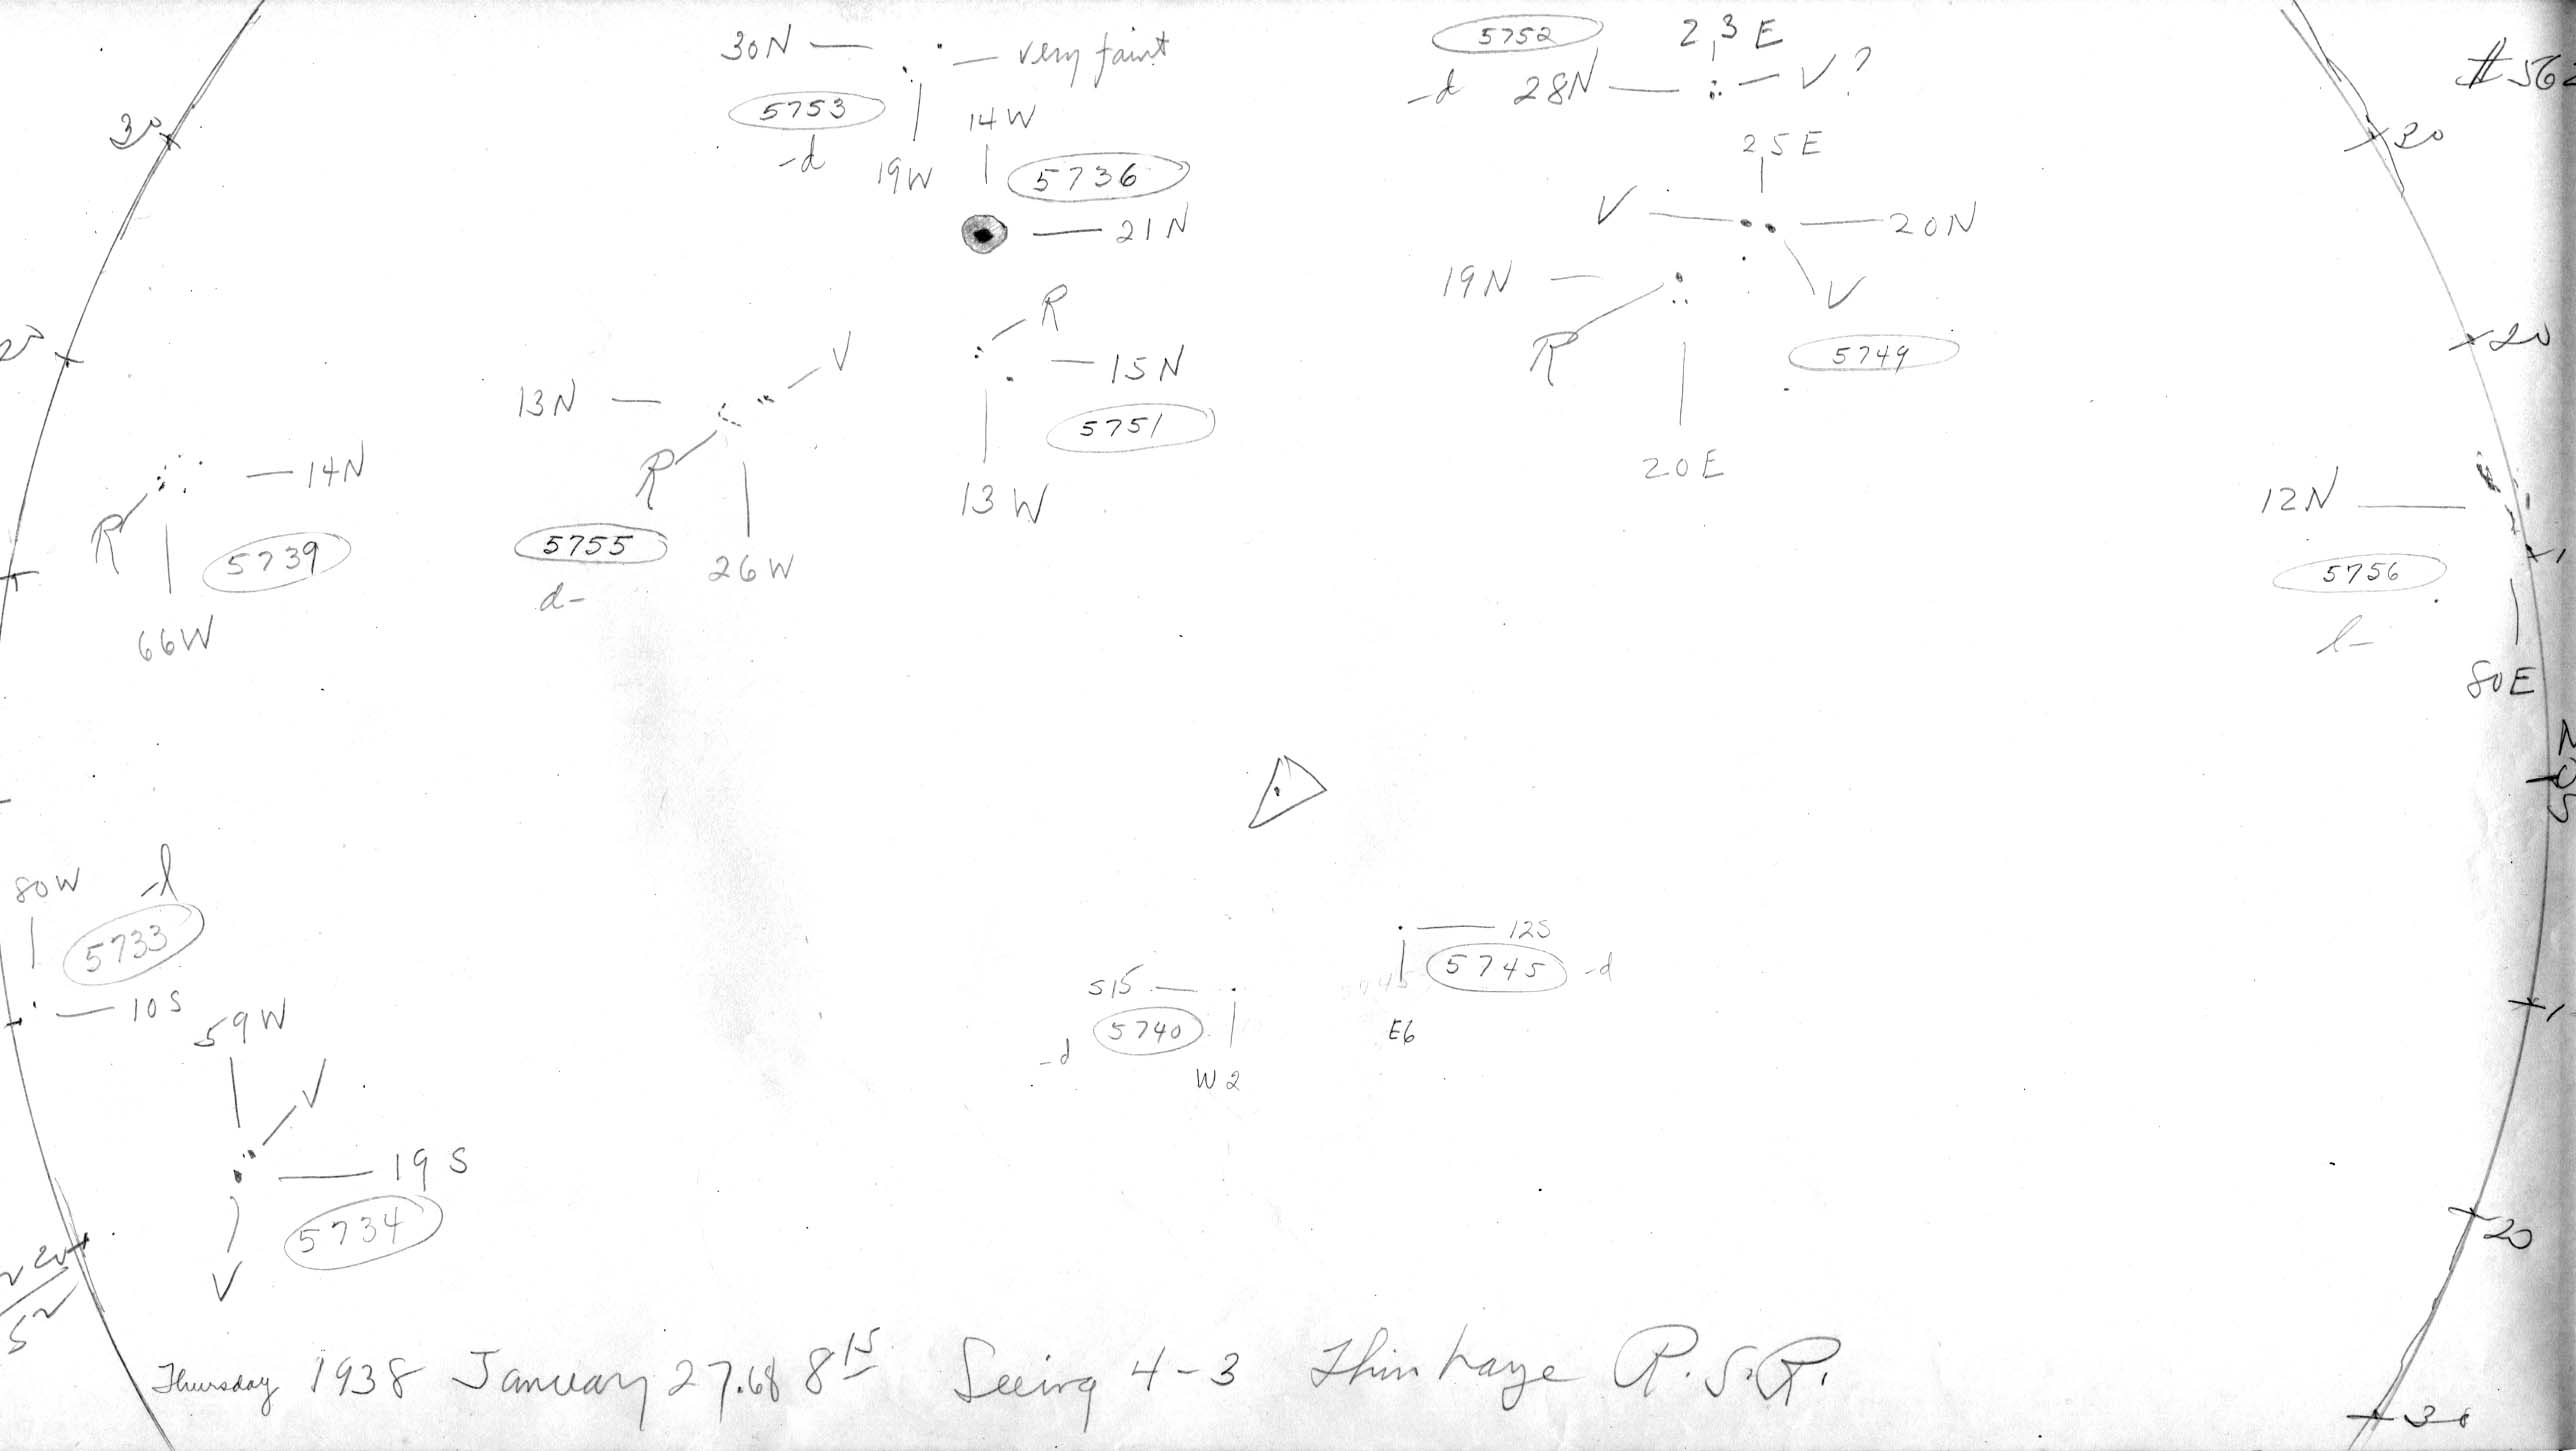 30N — — very faint
5753
-d
19W
14W
5736
— 21N
5752
2,3 E
-d 28N — — V?
25E
V — — 20N
V
19N —
R
5749
20E
30
30
20
20
R
— 15N
5751
13W
13N —
V
R
5755
d-
26W
— 14N
R
5739
66W
12N —
5756
l-
80E
N
0
S
80W
-l
5733
— 10S
59W
V
— 19S
5734
V
S15 —
5740
-d
W2
— 12S
5745 -d
E6
20
20
30
Thursday 1938 January 27.68 8 15 Seeing 4-3 Thin haze R.S.R.